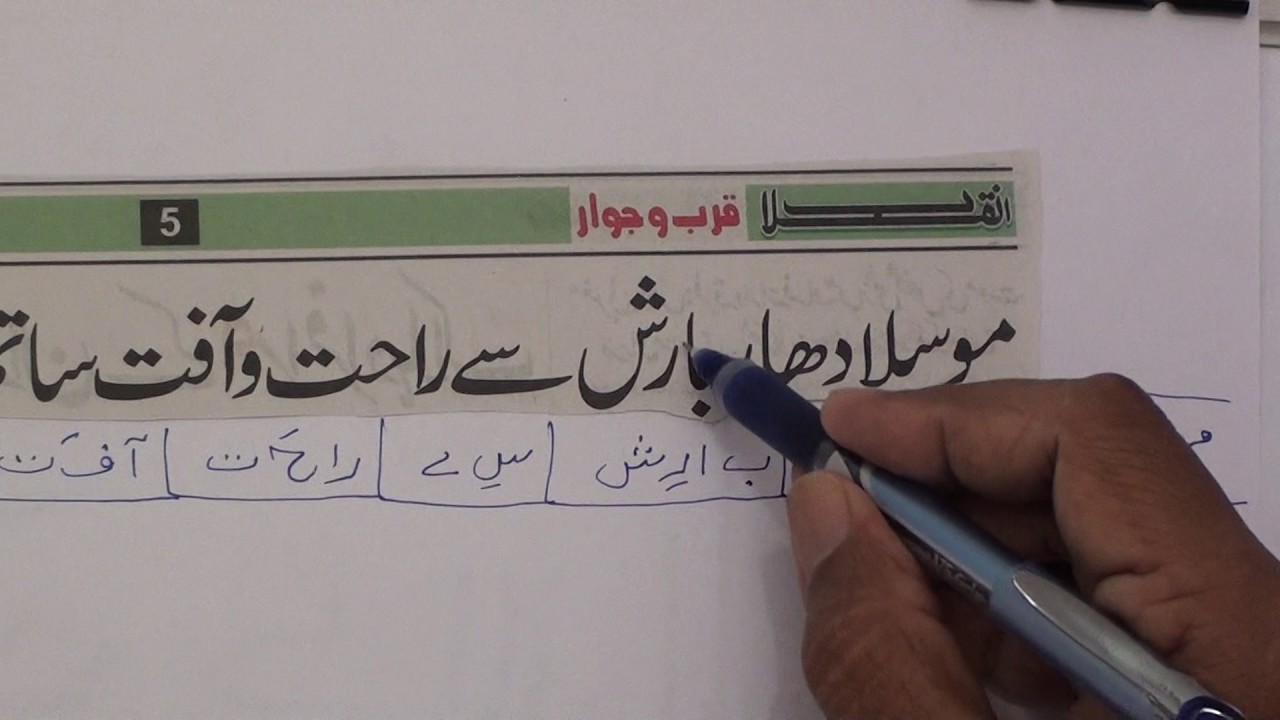 انقلاب قرب و جوار 5
موسلا دھار بارش سے راحت و آفت
ب ارِش سِ ے را حَ ت آ فَ ت